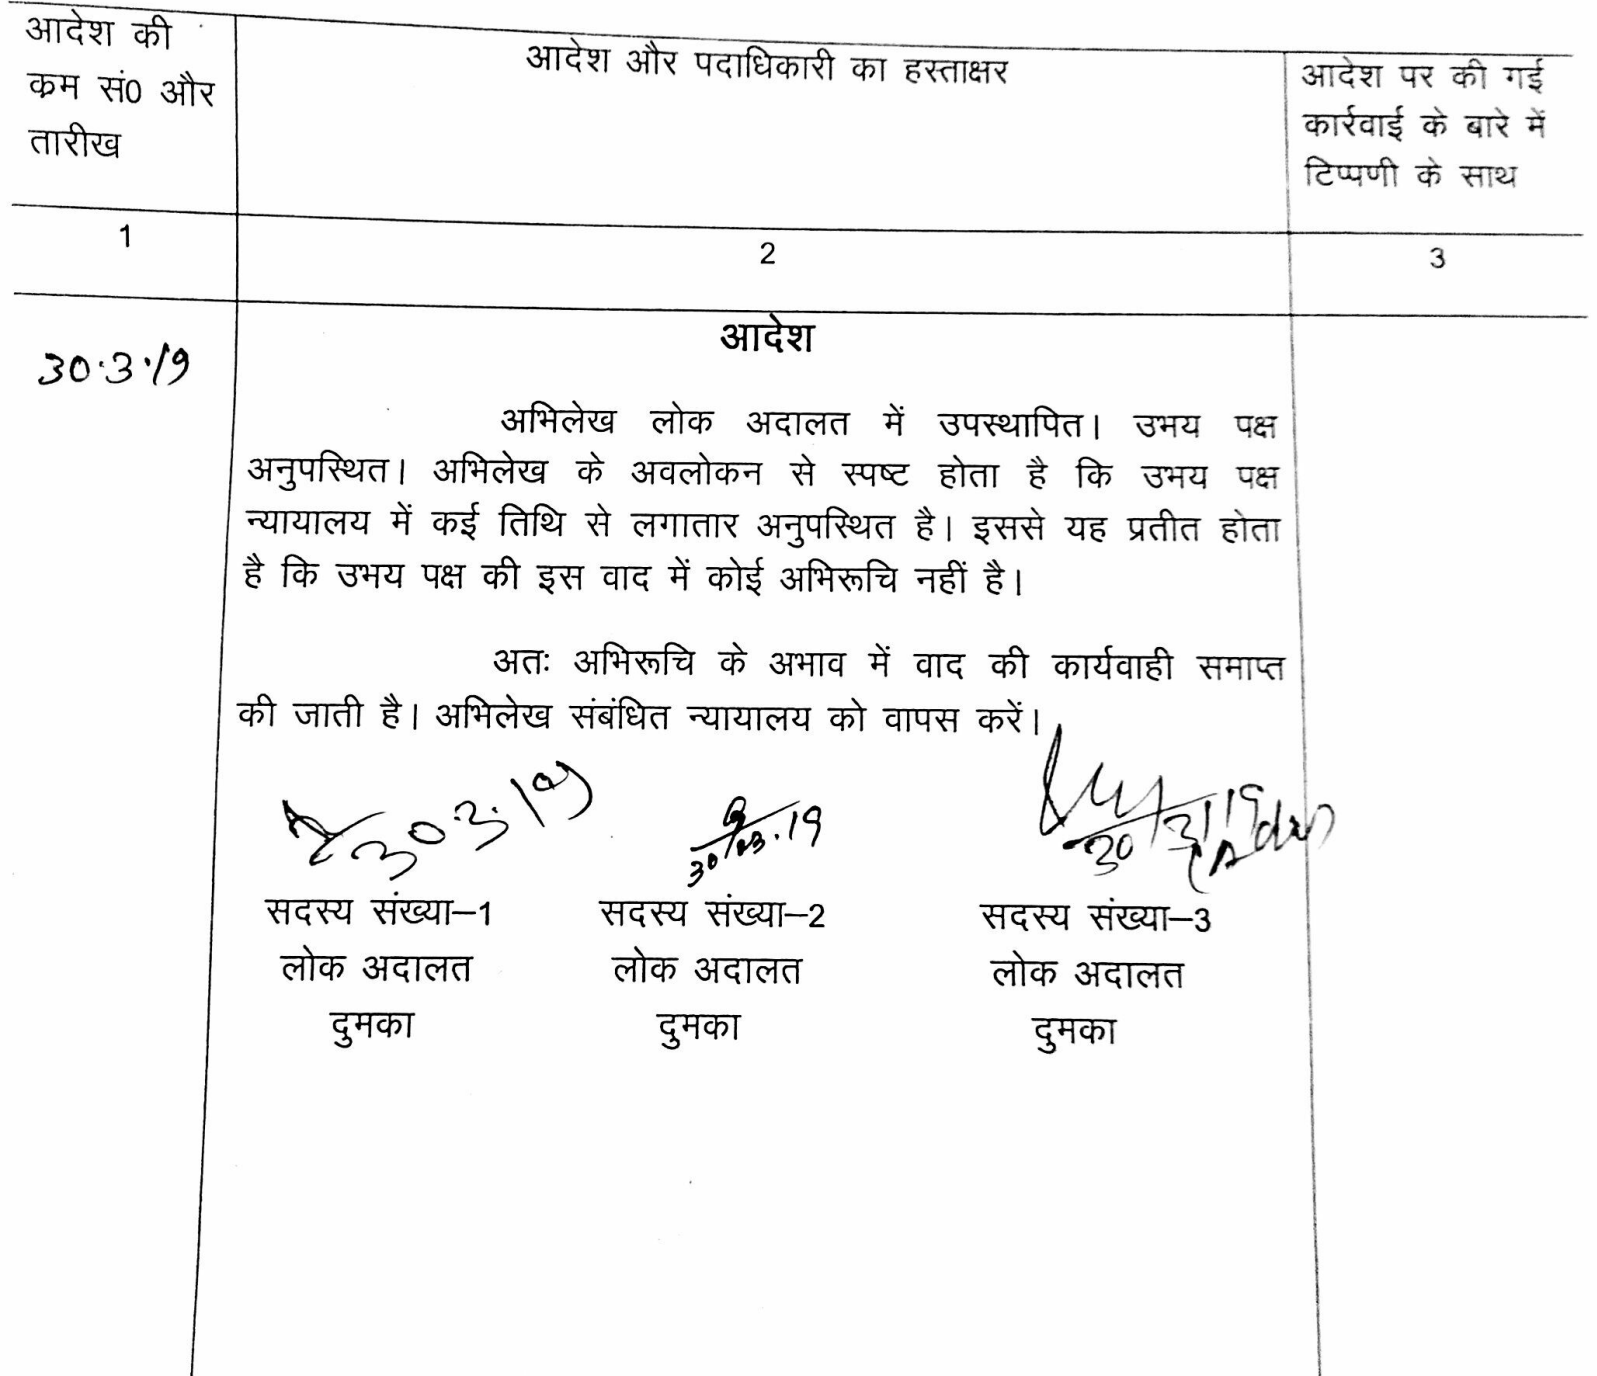 आदेश की
कम सं0 और
तारीख
आदेश और पदाधिकारी का हस्ताक्षर
आदेश पर की गई
कार्रवाई के बारे में
टिप्पणी के साथ
1
2
3
आदेश
30.3.19
अभिलेख लोक अदालत में उपस्थापित। उभय पक्ष
अनुपस्थित। अभिलेख के अवलोकन से स्पष्ट होता है कि उभय पक्ष
न्यायालय में कई तिथि से लगातार अनुपस्थित है। इससे यह प्रतीत होता
है कि उभय पक्ष की इस वाद में कोई अभिरूचि नहीं है।
अतः अभिरूचि के अभाव में वाद की कार्यवाही समाप्त
की जाती है। अभिलेख संबंधित न्यायालय को वापस करें।
30.3.19
30/03.19
30/3/19
सदस्य संख्या–1
सदस्य संख्या–2
सदस्य संख्या–3
लोक अदालत
लोक अदालत
लोक अदालत
दुमका
दुमका
दुमका